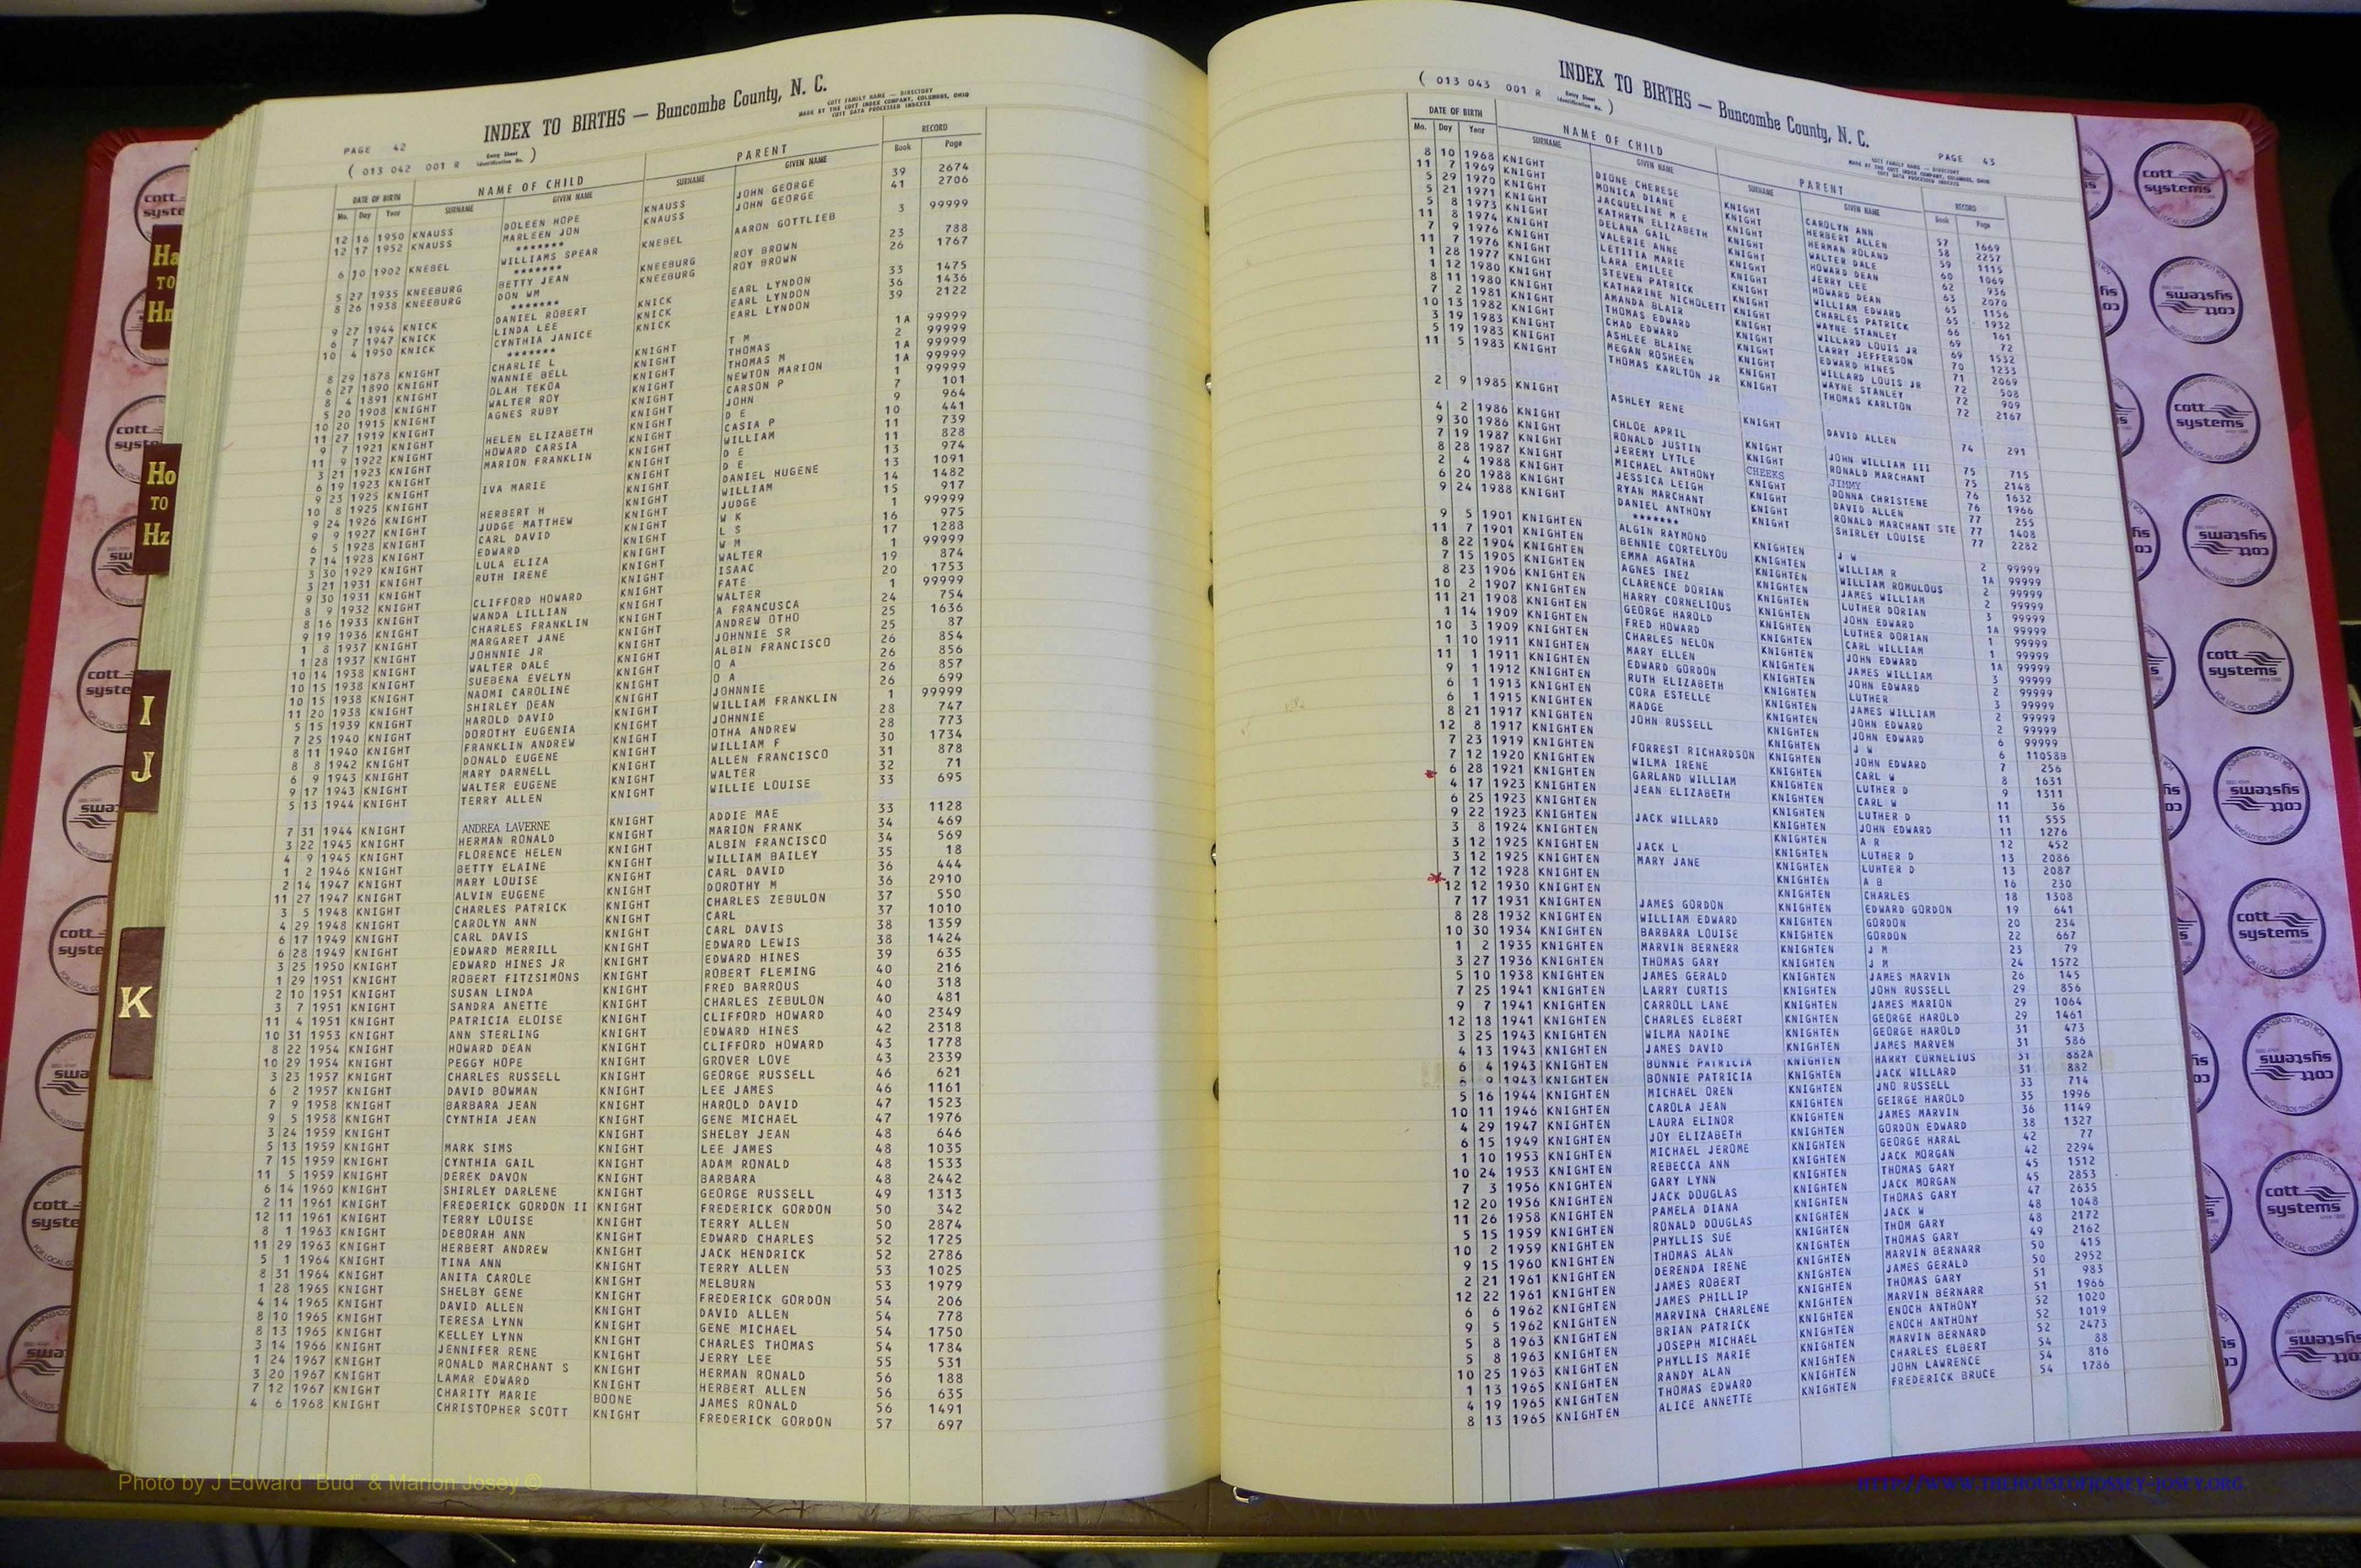 INDEX TO BIRTHS — Buncombe County, N. C.
COTT FAMILY NAME — DIRECTORY
MADE BY THE COTT INDEX COMPANY, COLUMBUS, OHIO
COTT DATA PROCESSED INDEXES
PAGE 42
( 013 042 001 R Entry Sheet Identification No. )
DATE OF BIRTH NAME OF CHILD PARENT RECORD
Mo. Day Year SURNAME GIVEN NAME SURNAME GIVEN NAME Book Page
12 16 1950 KNAUSS DOLEEN HOPE KNAUSS JOHN GEORGE 39 2674
12 17 1952 KNAUSS MARLEEN JON KNAUSS JOHN GEORGE 41 2706
*******
6 10 1902 KNEBEL WILLIAMS SPEAR KNEBEL AARON GOTTLIEB 3 99999
*******
5 27 1935 KNEEBURG BETTY JEAN KNEEBURG ROY BROWN 23 788
8 26 1938 KNEEBURG DON WM KNEEBURG ROY BROWN 26 1767
*******
9 27 1944 KNICK DANIEL ROBERT KNICK EARL LYNDON 33 1475
6 7 1947 KNICK LINDA LEE KNICK EARL LYNDON 36 1436
10 4 1950 KNICK CYNTHIA JANICE KNICK EARL LYNDON 39 2122
*******
8 29 1878 KNIGHT CHARLIE L KNIGHT T M 1A 99999
6 27 1890 KNIGHT NANNIE BELL KNIGHT THOMAS 2 99999
8 4 1891 KNIGHT OLAH TEKOA KNIGHT THOMAS M 1A 99999
5 20 1908 KNIGHT WALTER ROY KNIGHT NEWTON MARION 1A 99999
10 20 1915 KNIGHT AGNES RUBY KNIGHT CARSON P 1 99999
11 27 1919 KNIGHT KNIGHT JOHN 7 101
9 7 1921 KNIGHT HELEN ELIZABETH KNIGHT D E 9 964
11 9 1922 KNIGHT HOWARD CARSIA KNIGHT CASIA P 10 441
3 21 1923 KNIGHT MARION FRANKLIN KNIGHT WILLIAM 11 739
6 19 1923 KNIGHT KNIGHT D E 11 828
9 23 1925 KNIGHT IVA MARIE KNIGHT D E 13 974
10 8 1925 KNIGHT KNIGHT DANIEL HUGENE 13 1091
9 24 1926 KNIGHT HERBERT H KNIGHT WILLIAM 14 1482
9 9 1927 KNIGHT JUDGE MATTHEW KNIGHT JUDGE 15 917
6 5 1928 KNIGHT CARL DAVID KNIGHT W K 1 99999
7 14 1928 KNIGHT EDWARD KNIGHT L S 16 975
3 30 1929 KNIGHT LULA ELIZA KNIGHT W M 17 1288
3 21 1931 KNIGHT RUTH IRENE KNIGHT WALTER 1 99999
9 30 1931 KNIGHT KNIGHT ISAAC 19 874
8 9 1932 KNIGHT CLIFFORD HOWARD KNIGHT FATE 20 1753
8 16 1933 KNIGHT WANDA LILLIAN KNIGHT WALTER 1 99999
9 19 1936 KNIGHT CHARLES FRANKLIN KNIGHT A FRANCUSCA 24 754
1 8 1937 KNIGHT MARGARET JANE KNIGHT ANDREW OTHO 25 1636
1 28 1937 KNIGHT JOHNNIE JR KNIGHT JOHNNIE SR 25 87
10 14 1938 KNIGHT WALTER DALE KNIGHT ALBIN FRANCISCO 26 854
10 15 1938 KNIGHT SUEBENA EVELYN KNIGHT O A 26 856
10 15 1938 KNIGHT NAOMI CAROLINE KNIGHT O A 26 857
11 20 1938 KNIGHT SHIRLEY DEAN KNIGHT JOHNNIE 26 699
5 15 1939 KNIGHT HAROLD DAVID KNIGHT WILLIAM FRANKLIN 1 99999
7 25 1940 KNIGHT DOROTHY EUGENIA KNIGHT JOHNNIE 28 747
8 11 1940 KNIGHT FRANKLIN ANDREW KNIGHT OTHA ANDREW 28 773
8 8 1942 KNIGHT DONALD EUGENE KNIGHT WILLIAM F 30 1734
6 9 1943 KNIGHT MARY DARNELL KNIGHT ALLEN FRANCISCO 31 878
9 17 1943 KNIGHT WALTER EUGENE KNIGHT WALTER 32 71
5 13 1944 KNIGHT TERRY ALLEN KNIGHT WILLIE LOUISE 33 695
7 31 1944 KNIGHT ANDREA LAVERNE KNIGHT ADDIE MAE 33 1128
3 22 1945 KNIGHT HERMAN RONALD KNIGHT MARION FRANK 34 469
4 9 1945 KNIGHT FLORENCE HELEN KNIGHT ALBIN FRANCISCO 34 569
1 2 1946 KNIGHT BETTY ELAINE KNIGHT WILLIAM BAILEY 35 18
2 14 1947 KNIGHT MARY LOUISE KNIGHT CARL DAVID 36 444
11 27 1947 KNIGHT ALVIN EUGENE KNIGHT DOROTHY M 36 2910
3 5 1948 KNIGHT CHARLES PATRICK KNIGHT CHARLES ZEBULON 37 550
4 29 1948 KNIGHT CAROLYN ANN KNIGHT CARL 37 1010
6 17 1949 KNIGHT CARL DAVIS KNIGHT CARL DAVIS 38 1359
6 28 1949 KNIGHT EDWARD MERRILL KNIGHT EDWARD LEWIS 38 1424
3 25 1950 KNIGHT EDWARD HINES JR KNIGHT EDWARD HINES 39 635
1 29 1951 KNIGHT ROBERT FITZSIMONS KNIGHT ROBERT FLEMING 40 216
2 10 1951 KNIGHT SUSAN LINDA KNIGHT FRED BARROUS 40 318
3 7 1951 KNIGHT SANDRA ANETTE KNIGHT CHARLES ZEBULON 40 481
11 4 1951 KNIGHT PATRICIA ELOISE KNIGHT CLIFFORD HOWARD 40 2349
10 31 1953 KNIGHT ANN STERLING KNIGHT EDWARD HINES 42 2318
8 22 1954 KNIGHT HOWARD DEAN KNIGHT CLIFFORD HOWARD 43 1778
10 29 1954 KNIGHT PEGGY HOPE KNIGHT GROVER LOVE 43 2339
3 23 1957 KNIGHT CHARLES RUSSELL KNIGHT GEORGE RUSSELL 46 621
6 2 1957 KNIGHT DAVID BOWMAN KNIGHT LEE JAMES 46 1161
7 9 1958 KNIGHT BARBARA JEAN KNIGHT HAROLD DAVID 47 1523
9 5 1958 KNIGHT CYNTHIA JEAN KNIGHT GENE MICHAEL 47 1976
3 24 1959 KNIGHT KNIGHT SHELBY JEAN 48 646
5 13 1959 KNIGHT MARK SIMS KNIGHT LEE JAMES 48 1035
7 15 1959 KNIGHT CYNTHIA GAIL KNIGHT ADAM RONALD 48 1533
11 5 1959 KNIGHT DEREK DAVON KNIGHT BARBARA 48 2442
6 14 1960 KNIGHT SHIRLEY DARLENE KNIGHT GEORGE RUSSELL 49 1313
2 11 1961 KNIGHT FREDERICK GORDON II KNIGHT FREDERICK GORDON 50 342
12 11 1961 KNIGHT TERRY LOUISE KNIGHT TERRY ALLEN 50 2874
8 1 1963 KNIGHT DEBORAH ANN KNIGHT EDWARD CHARLES 52 1725
11 29 1963 KNIGHT HERBERT ANDREW KNIGHT JACK HENDRICK 52 2786
5 1 1964 KNIGHT TINA ANN KNIGHT TERRY ALLEN 53 1025
8 31 1964 KNIGHT ANITA CAROLE KNIGHT MELBURN 53 1979
1 28 1965 KNIGHT SHELBY GENE KNIGHT FREDERICK GORDON 54 206
4 14 1965 KNIGHT DAVID ALLEN KNIGHT DAVID ALLEN 54 778
8 10 1965 KNIGHT TERESA LYNN KNIGHT GENE MICHAEL 54 1750
8 13 1965 KNIGHT KELLEY LYNN KNIGHT CHARLES THOMAS 54 1784
3 14 1966 KNIGHT JENNIFER RENE KNIGHT JERRY LEE 55 531
1 24 1967 KNIGHT RONALD MARCHANT S KNIGHT HERMAN RONALD 56 188
3 20 1967 KNIGHT LAMAR EDWARD KNIGHT HERBERT ALLEN 56 635
7 12 1967 KNIGHT CHARITY MARIE BOONE JAMES RONALD 56 1491
4 6 1968 KNIGHT CHRISTOPHER SCOTT KNIGHT FREDERICK GORDON 57 697
INDEX TO BIRTHS — Buncombe County, N. C.
PAGE 43
( 013 043 001 R Entry Sheet Identification No. )
COTT FAMILY NAME — DIRECTORY
MADE BY THE COTT INDEX COMPANY, COLUMBUS, OHIO
COTT DATA PROCESSED INDEXES
DATE OF BIRTH NAME OF CHILD PARENT RECORD
Mo. Day Year SURNAME GIVEN NAME SURNAME GIVEN NAME Book Page
8 10 1968 KNIGHT DIONE CHERESE KNIGHT CAROLYN ANN 57 1669
11 7 1969 KNIGHT MONICA DIANE KNIGHT HERBERT ALLEN 58 2257
5 29 1970 KNIGHT JACQUELINE M E KNIGHT HERMAN ROLAND 59 1115
5 21 1971 KNIGHT KATHRYN ELIZABETH KNIGHT WALTER DALE 60 1069
5 8 1973 KNIGHT DELANA GAIL KNIGHT HOWARD DEAN 62 936
11 8 1974 KNIGHT VALERIE ANNE KNIGHT JERRY LEE 63 2070
7 9 1976 KNIGHT LETITIA MARIE KNIGHT HOWARD DEAN 65 1156
11 7 1976 KNIGHT LARA EMILEE KNIGHT WILLIAM EDWARD 65 1932
1 28 1977 KNIGHT STEVEN PATRICK KNIGHT CHARLES PATRICK 66 161
1 12 1980 KNIGHT KATHARINE NICHOLETT KNIGHT WAYNE STANLEY 69 72
8 11 1980 KNIGHT AMANDA BLAIR KNIGHT WILLARD LOUIS JR 69 1532
7 2 1981 KNIGHT THOMAS EDWARD KNIGHT LARRY JEFFERSON 70 1233
10 13 1982 KNIGHT CHAD EDWARD KNIGHT EDWARD HINES 71 2069
3 19 1983 KNIGHT ASHLEE BLAINE KNIGHT WILLARD LOUIS JR 72 508
5 19 1983 KNIGHT MEGAN ROSHEEN KNIGHT WAYNE STANLEY 72 909
11 5 1983 KNIGHT THOMAS KARLTON JR KNIGHT THOMAS KARLTON 72 2167
2 9 1985 KNIGHT ASHLEY RENE KNIGHT DAVID ALLEN 74 291
4 2 1986 KNIGHT CHLOE APRIL KNIGHT JOHN WILLIAM III 75 715
9 30 1986 KNIGHT RONALD JUSTIN KNIGHT RONALD MARCHANT 75 2148
7 19 1987 KNIGHT JEREMY LYTLE CHEEKS JIMMY 76 1632
8 28 1987 KNIGHT MICHAEL ANTHONY KNIGHT DONNA CHRISTENE 76 1966
2 4 1988 KNIGHT JESSICA LEIGH KNIGHT DAVID ALLEN 77 255
6 20 1988 KNIGHT RYAN MARCHANT KNIGHT RONALD MARCHANT STE 77 1408
9 24 1988 KNIGHT DANIEL ANTHONY KNIGHT SHIRLEY LOUISE 77 2282
*******
9 5 1901 KNIGHTEN ALGIN RAYMOND KNIGHTEN J W 2 99999
11 7 1901 KNIGHTEN BENNIE CORTELYOU KNIGHTEN WILLIAM R 1A 99999
8 22 1904 KNIGHTEN EMMA AGATHA KNIGHTEN WILLIAM ROMULOUS 2 99999
7 15 1905 KNIGHTEN AGNES INEZ KNIGHTEN JAMES WILLIAM 2 99999
8 23 1906 KNIGHTEN CLARENCE DORIAN KNIGHTEN LUTHER DORIAN 3 99999
10 2 1907 KNIGHTEN HARRY CORNELIOUS KNIGHTEN JOHN EDWARD 1A 99999
11 21 1908 KNIGHTEN GEORGE HAROLD KNIGHTEN LUTHER DORIAN 99999
1 14 1909 KNIGHTEN FRED HOWARD KNIGHTEN CARL WILLIAM 1 99999
10 3 1909 KNIGHTEN CHARLES NELON KNIGHTEN JOHN EDWARD 1A 99999
1 10 1911 KNIGHTEN MARY ELLEN KNIGHTEN JAMES WILLIAM 3 99999
11 1 1911 KNIGHTEN EDWARD GORDON KNIGHTEN JOHN EDWARD 2 99999
9 1 1912 KNIGHTEN RUTH ELIZABETH KNIGHTEN LUTHER 3 99999
6 1 1913 KNIGHTEN CORA ESTELLE KNIGHTEN JAMES WILLIAM 2 99999
6 1 1915 KNIGHTEN MADGE KNIGHTEN JOHN EDWARD 2 99999
8 21 1917 KNIGHTEN JOHN RUSSELL KNIGHTEN JOHN EDWARD 99999
12 8 1917 KNIGHTEN KNIGHTEN J W 6 11058B
7 23 1919 KNIGHTEN FORREST RICHARDSON KNIGHTEN JOHN EDWARD 7 256
7 12 1920 KNIGHTEN WILMA IRENE KNIGHTEN CARL W 8 1631
6 28 1921 KNIGHTEN GARLAND WILLIAM KNIGHTEN LUTHER D 9 1311
4 17 1923 KNIGHTEN JEAN ELIZABETH KNIGHTEN CARL W 11 36
6 25 1923 KNIGHTEN KNIGHTEN LUTHER D 11 555
9 22 1923 KNIGHTEN JACK WILLARD KNIGHTEN JOHN EDWARD 11 1276
3 8 1924 KNIGHTEN KNIGHTEN A R 12 452
3 12 1925 KNIGHTEN JACK L KNIGHTEN LUTHER D 13 2086
3 12 1925 KNIGHTEN MARY JANE KNIGHTEN LUHTER D 13 2087
7 12 1928 KNIGHTEN KNIGHTEN A B 16 230
12 12 1930 KNIGHTEN KNIGHTEN CHARLES 18 1308
7 17 1931 KNIGHTEN JAMES GORDON KNIGHTEN EDWARD GORDON 19 641
8 28 1932 KNIGHTEN WILLIAM EDWARD KNIGHTEN GORDON 20 234
10 30 1934 KNIGHTEN BARBARA LOUISE KNIGHTEN GORDON 22 667
1 2 1935 KNIGHTEN MARVIN BERNERR KNIGHTEN J M 23 79
3 27 1936 KNIGHTEN THOMAS GARY KNIGHTEN J M 24 1572
5 10 1938 KNIGHTEN JAMES GERALD KNIGHTEN JAMES MARVIN 26 145
7 25 1941 KNIGHTEN LARRY CURTIS KNIGHTEN JOHN RUSSELL 29 856
9 7 1941 KNIGHTEN CARROLL LANE KNIGHTEN JAMES MARION 29 1064
12 18 1941 KNIGHTEN CHARLES ELBERT KNIGHTEN GEORGE HAROLD 29 1461
3 25 1943 KNIGHTEN WILMA NADINE KNIGHTEN GEORGE HAROLD 31 473
4 13 1943 KNIGHTEN JAMES DAVID KNIGHTEN JAMES MARVEN 31 586
6 4 1943 KNIGHTEN BONNIE PATRICIA KNIGHTEN HARRY CORNELIUS 31 882A
9 1943 KNIGHTEN BONNIE PATRICIA KNIGHTEN JACK WILLARD 31 882
5 16 1944 KNIGHTEN MICHAEL OREN KNIGHTEN JNO RUSSELL 33 714
10 11 1946 KNIGHTEN CAROLA JEAN KNIGHTEN GEIRGE HAROLD 35 1996
4 29 1947 KNIGHTEN LAURA ELINOR KNIGHTEN JAMES MARVIN 36 1149
6 15 1949 KNIGHTEN JOY ELIZABETH KNIGHTEN GORDON EDWARD 38 1327
1 10 1953 KNIGHTEN MICHAEL JEROME KNIGHTEN GEORGE HARAL 42 77
10 24 1953 KNIGHTEN REBECCA ANN KNIGHTEN JACK MORGAN 42 2294
7 3 1956 KNIGHTEN GARY LYNN KNIGHTEN THOMAS GARY 45 1512
12 20 1956 KNIGHTEN JACK DOUGLAS KNIGHTEN JACK MORGAN 45 2853
11 26 1958 KNIGHTEN PAMELA DIANA KNIGHTEN THOMAS GARY 47 2635
5 15 1959 KNIGHTEN RONALD DOUGLAS KNIGHTEN JACK W 48 1048
10 2 1959 KNIGHTEN PHYLLIS SUE KNIGHTEN THOM GARY 48 2172
9 15 1960 KNIGHTEN THOMAS ALAN KNIGHTEN THOMAS GARY 49 2162
2 21 1961 KNIGHTEN DERENDA IRENE KNIGHTEN MARVIN BERNARR 50 415
12 22 1961 KNIGHTEN JAMES ROBERT KNIGHTEN JAMES GERALD 50 2952
6 6 1962 KNIGHTEN JAMES PHILLIP KNIGHTEN THOMAS GARY 51 983
9 5 1962 KNIGHTEN MARVINA CHARLENE KNIGHTEN MARVIN BERNARR 51 1966
5 8 1963 KNIGHTEN BRIAN PATRICK KNIGHTEN ENOCH ANTHONY 52 1020
5 8 1963 KNIGHTEN JOSEPH MICHAEL KNIGHTEN ENOCH ANTHONY 52 1019
10 25 1963 KNIGHTEN PHYLLIS MARIE KNIGHTEN MARVIN BERNARD 52 2473
1 13 1965 KNIGHTEN RANDY ALAN KNIGHTEN CHARLES ELBERT 54 88
4 19 1965 KNIGHTEN THOMAS EDWARD KNIGHTEN JOHN LAWRENCE 54 816
8 13 1965 KNIGHTEN ALICE ANNETTE KNIGHTEN FREDERICK BRUCE 54 1786
Ha TO Hn
Ho TO Hz
I
J
K
cott systems
INDEXING SOLUTIONS
FOR LOCAL GOVERNMENT
Photo by J Edward "Bud" & Marion Josey ©
HTTP://WWW.THEHOUSEOFJOSSEY-JOSEY.ORG